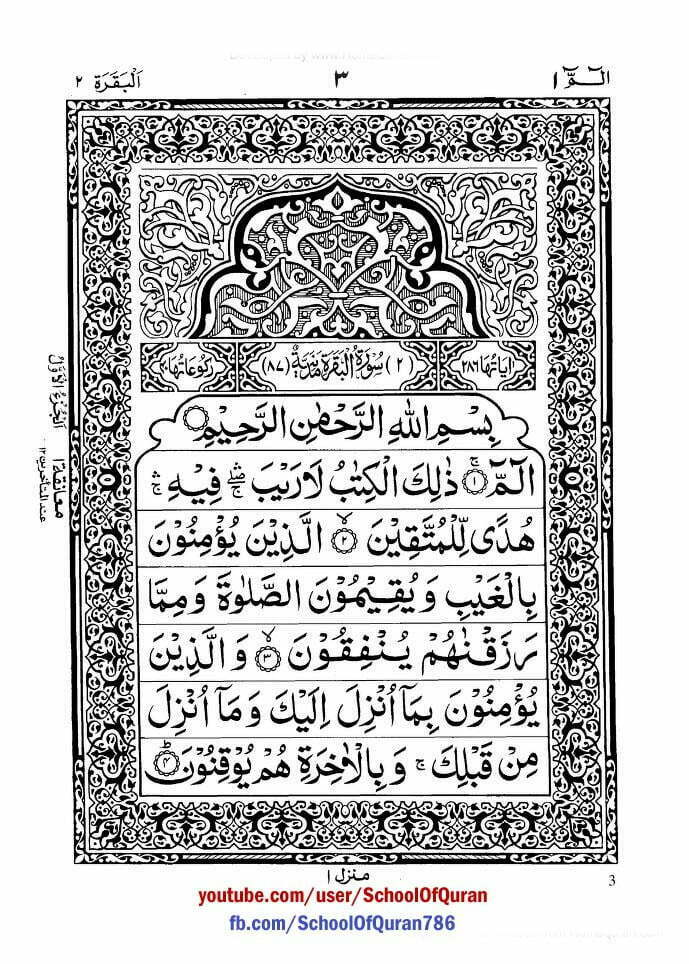 الٓـمّٓ ۱
۳
اَلْبَقَرَة ۲
اٰيَاتُهَا ۲۸۶
(۲) سُوْرَةُ الْبَقَرَةِ مَدَنِيَّةٌ (۸۷)
رُكُوْعَاتُهَا ۴۰
بِسْمِ اللّٰهِ الرَّحْمٰنِ الرَّحِيْمِ
الٓمّٓ ۚ﴿۱﴾ ذٰلِكَ الْكِتٰبُ لَا رَيْبَ ۛۖۚ فِيْهِ ۛۚ
هُدًى لِّلْمُتَّقِيْنَ ۙ﴿۲﴾ الَّذِيْنَ يُؤْمِنُوْنَ
بِالْغَيْبِ وَ يُقِيْمُوْنَ الصَّلٰوةَ وَ مِمَّا
رَزَقْنٰهُمْ يُنْفِقُوْنَ ۙ﴿۳﴾ وَ الَّذِيْنَ
يُؤْمِنُوْنَ بِمَاۤ اُنْزِلَ اِلَيْكَ وَ مَاۤ اُنْزِلَ
مِنْ قَبْلِكَ ۚ وَ بِالْاٰخِرَةِ هُمْ يُوْقِنُوْنَ ؕ﴿۴﴾
اَلْجُزْءُ الْاَوَّلُ
معانقة ۱
عند المتأخرين ۱۲
منزل ۱
3
youtube.com/user/SchoolOfQuran
fb.com/SchoolOfQuran786